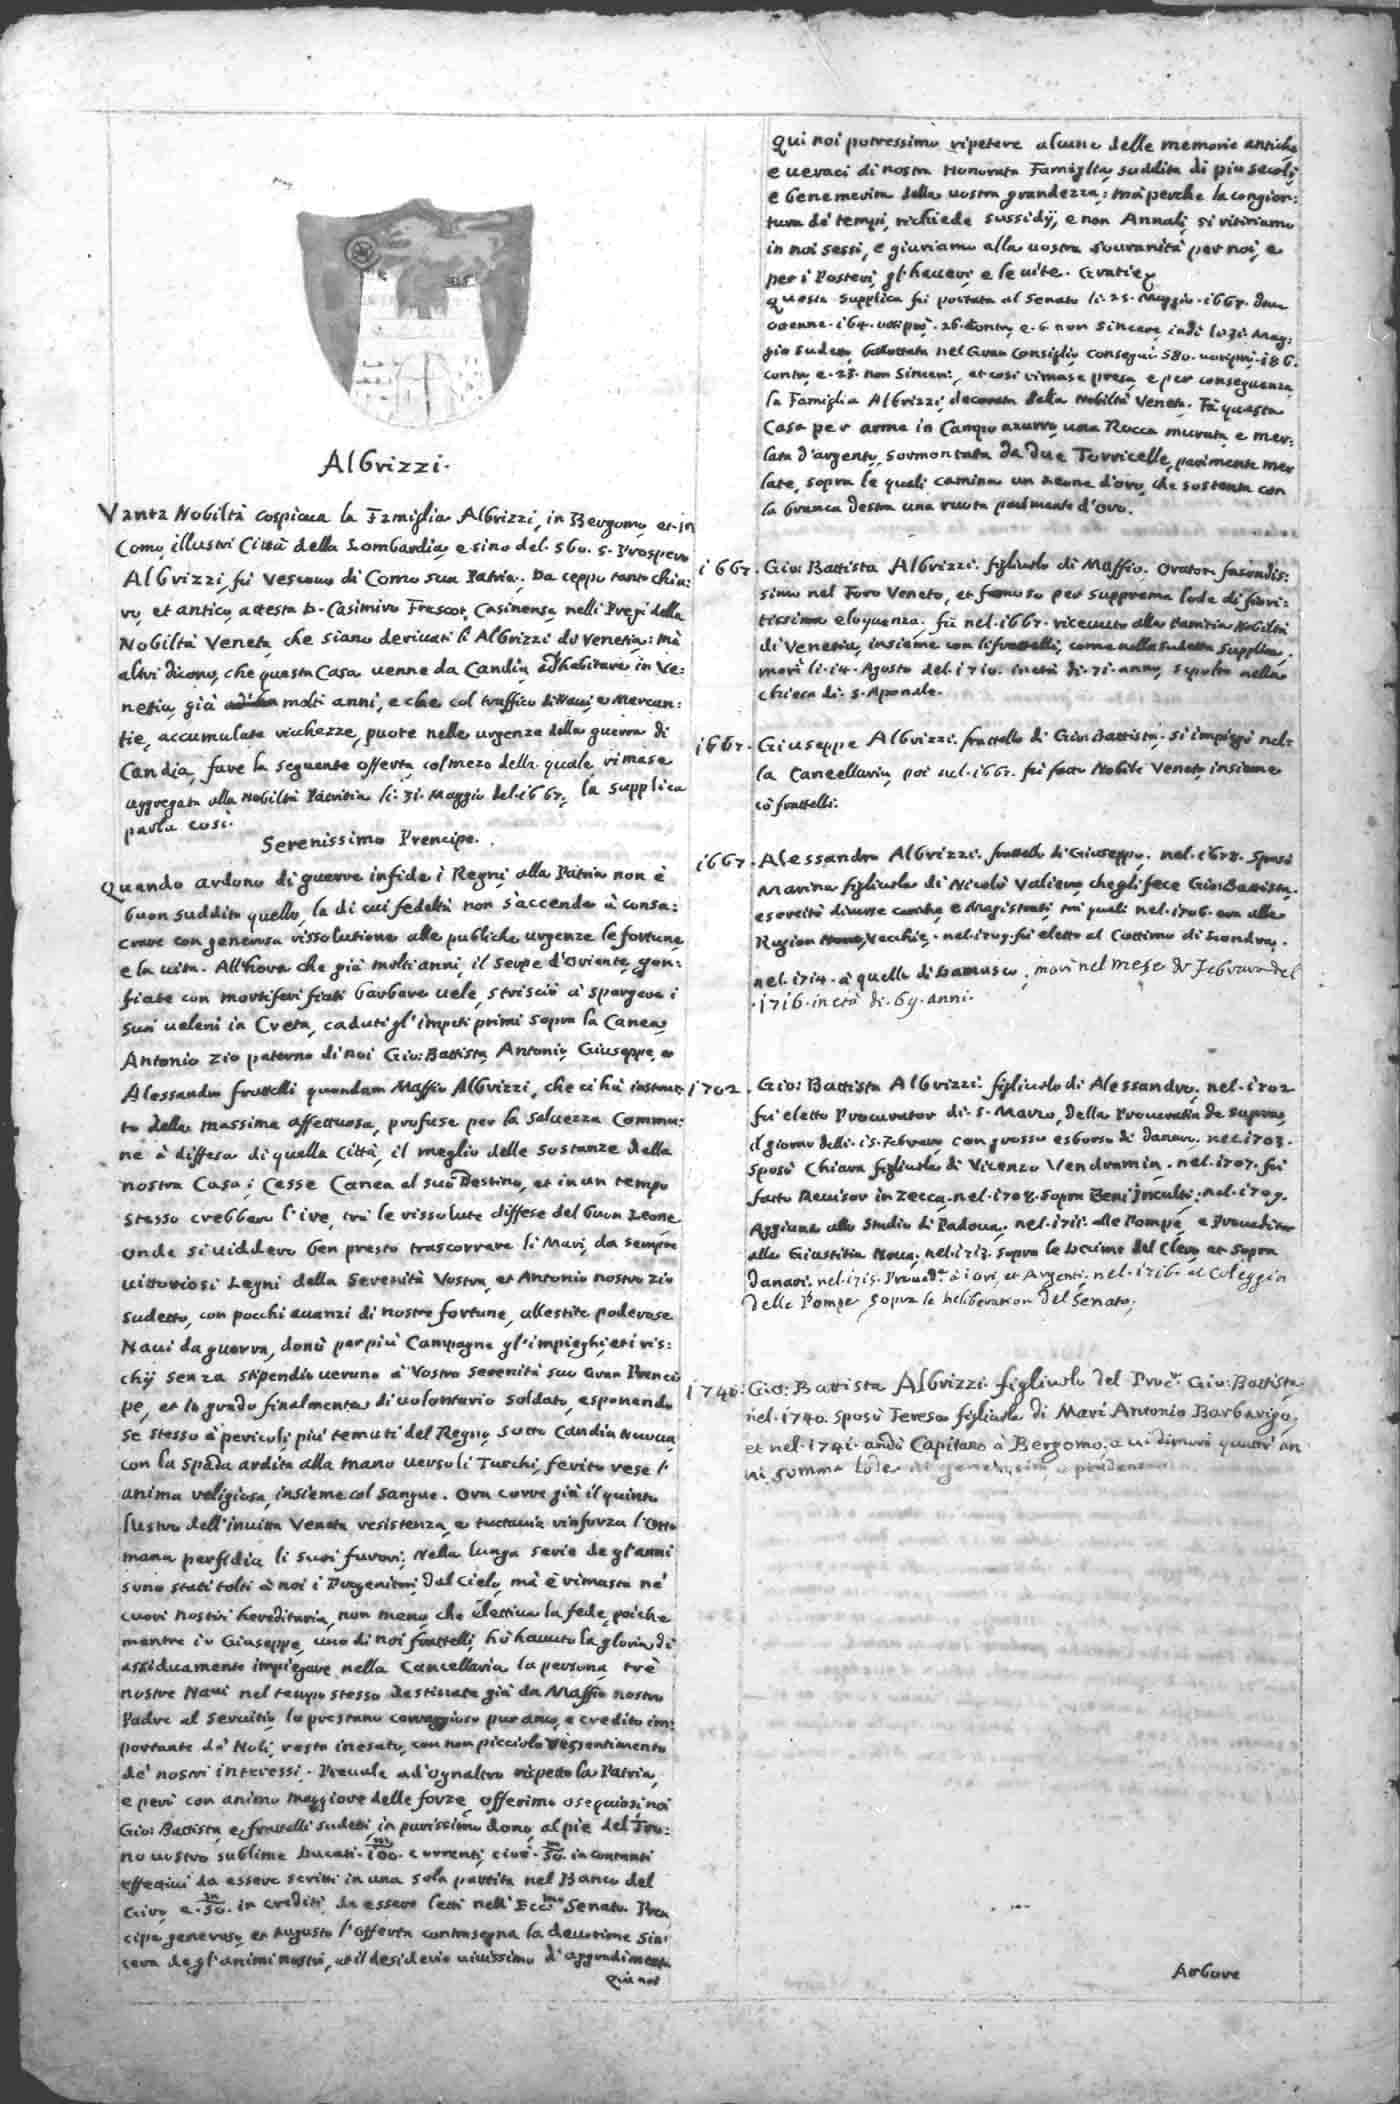 Albrizzi.
Vanta Nobiltà cospicua la Famiglia Albrizzi, in Bergomo, et in
Como, illustri Città della Lombardia, e sino del. 560. S. Prospero
Albrizzi, fù Vescouo di Como sua Patria. Da ceppo tanto chia:
ro, et antico, attesta D. Casimiro Frescot, Casinense, nelli Pregi della
Nobiltà Veneta, che siano deriuati li Albrizzi di Venetia: mà
altri dicono, che questa Casa uenne da Candia ad habitare in Ve:
netia, già molti anni, e che col traffico di Naui, e Mercan:
tie, accumulate richezze, puote nelle urgenze della guerra di
Candia, fare la seguente offerta, col mezo della quale, rimase
aggregata alla Nobiltà Patritia li. 31. Maggio del. 1667. la supplica
parla così.
Serenissimo Prencipe.
Quando ardono di guerre infide i Regni, alla Patria non è
buon suddito quello, la di cui fedeltà non s'accende à consa:
crare con generosa rissolutione alle publiche urgenze le fortune,
e la uita. All'hora che già molti anni, il serpe d'Oriente, gon:
fiate con mortiferi fiati barbare uele, strisciò à spargere i
suoi ueleni in Creta, caduti gl'impeti primi sopra la Canea,
Antonio zio paterno di noi Gio: Battista, Antonio, Giuseppe, et
Alessandro fratelli quondam Maffio Albrizzi, che ci hà instrut:
to della massima affettuosa, profuse per la saluezza commu:
ne à diffesa di quella Città, il meglio delle sostanze della
nostra Casa; Cesse Canea al suo Destino, et in un tempo
stesso crebbero l'ire, trà le rissolute diffese del buon Leone
onde si uiddero ben presto trascorrere li Mari, da sempre
uittoriosi Legni della Serenità Vostra, et Antonio nostro zio
sudetto, con pocchi auanzi di nostre fortune, allestite poderose
Naui da guerra, donò per più Campagne gl'impieghi, et i ris:
chij senza stipendio ueruno à Vostra Serenità suo Gran Prenci
pe, et in grado finalmente di uolontario soldato, esponendo
se stesso à pericoli più temuti del Regno, sotto Candia Nuoua,
con la spada ardita alla mano uerso li Turchi, ferito rese l'
anima religiosa, insieme col sangue. Ora corre già il quinto
lustro dell'inuitta Veneta resistenza, e tuttauia rinforza l'Otto
mana perfidia li suoi furori; Nella lunga serie de gl'anni
sono stati tolti à noi i Progenitori dal Cielo, mà è rimasta ne'
cuori nostri hereditaria, non meno, che elettiua la fede, poiche
mentre io Giuseppe, uno di noi fratelli, hò hauuto la gloria di
assiduamente impiegare nella Cancellaria la persona, trè
nostre Naui nel tempo stesso destinate già da Maffio nostro
Padre al Seruitio, lo prestano coraggioso pur anco, e credito im:
portante de' Noli, resta inesato, con non picciolo rissentimento
de' nostri interessi. Preuale ad'ogn'altro rispetto la Patria,
e però con animo maggiore delle forze, offerimo osequiosi noi
Gio: Battista, e fratelli sudetti in purissimo dono, al piè del Tro:
no uostro sublime Ducati. 100. m correnti, cioè. 50. m in contanti
effettiui da essere scritti in una sola partita nel Banco del
Giro, e. 50. m in crediti, da essere letti nell'Ecc:mo Senato. Pren
cipe generoso, et Augusto l'offerta contrasegna la deuotione sin:
cera de gl'animi nostri, et il desiderio uiuissimo d'aggradimento
Qui noi
Qui noi potressimo ripetere alcune delle memorie antiche,
e ueraci di nostra Honorata Famiglia, suddita di più secoli,
e benemerita della uostra grandezza: mà perche la congion:
tura de' tempi, richiede sussidij, e non Annali, si ritiriamo
in noi stessi, e giuriamo alla uostra Souranità per noi, e
per i Posteri, gl'haueri, e le uite. Gratie
Questa supplica fù portata al Senato li. 25. Maggio. 1667. doue
ottenne. 164. 26. contro, e. 6. non sincere, indi lo 31. Mag:
gio sudetto ballottata nel Gran Consiglio, conseguì. 580. 186.
contro, e. 23. non sincere, et così rimase presa, e per conseguenza
la Famiglia Albrizzi, decorata della Nobiltà Veneta. Fà questa
Casa per arma in Campo azurro, una Rocca murata, e mer:
lata d'argento, sormontata da due Torricelle, parimente mer
late, sopra le quali camina un Leone d'oro, che sostenta con
la branca destra una ruota parimente d'oro.
1667. Gio: Battista Albrizzi. figliuolo di Maffio. Orator facondis:
simo nel Foro Veneto, et famoso per suprema lode di fiori:
tissima eloquenza. fù nel. 1667. riceuuto alla Patritia Nobiltà
di Venetia, insieme con li fratelli, come nella sudetta supplica.
morì li. 14. Agosto del. 1710. in età di. 71. anno, sepolto nella
chiesa di. S. Aponale.
1667. Giuseppe Albrizzi. fratello di Gio: Battista. si impiegò nel:
la Cancellaria, poi nel. 1667. fù fatto Nobile Veneto, insieme
cò fratelli.
1667. Alessandro Albrizzi. fratello di Giuseppe. nel. 1678. sposò
Marina figliuola di Nicolò Valiero che gli fece Gio: Battista.
esercitò diuerse cariche, e Magistrati, trà quali nel. 1706. era alle
Rason Vecchie. nel. 1709. fù eletto al Cottimo di Londra,
nel. 1714. à quello di Damasco, morì nel mese di Febraro del
. 1716. in età di. 69. anni.
1702. Gio: Battista Albrizzi. figliuolo di Alessandro, nel. 1702
fù eletto Procurator di. S. Marco, della Procuratia de supra,
il giorno delli. 15. Febraro, con grosso esborso di danaro. nel. 1703.
sposò Chiara figliuola di Vicenzo Vendramin. nel. 1707. fù
fatto Reuisor in Zecca. nel. 1708. sopra Beni Inculti. nel. 1709.
Aggiunto allo Studio di Padoua. nel. 1711. alle Pompe, e Proueditor
alla Giustitia Noua. nel. 1713. sopra le Decime del Clero, et sopra
danari. nel. 1715. Proued:r à i ori, et Argenti. nel. 1716. al Coleggio
delle Pompe, sopra la deliberation del Senato.
1740. Gio: Battista Albrizzi. figliuolo del Proc:r Gio: Battista.
nel. 1740. sposò Teresa figliuola di Marc'Antonio Barbarigo,
et nel. 1741. andò Capitano à Bergomo, oue dimorò quatr'an
ni, somma lode
Arbore